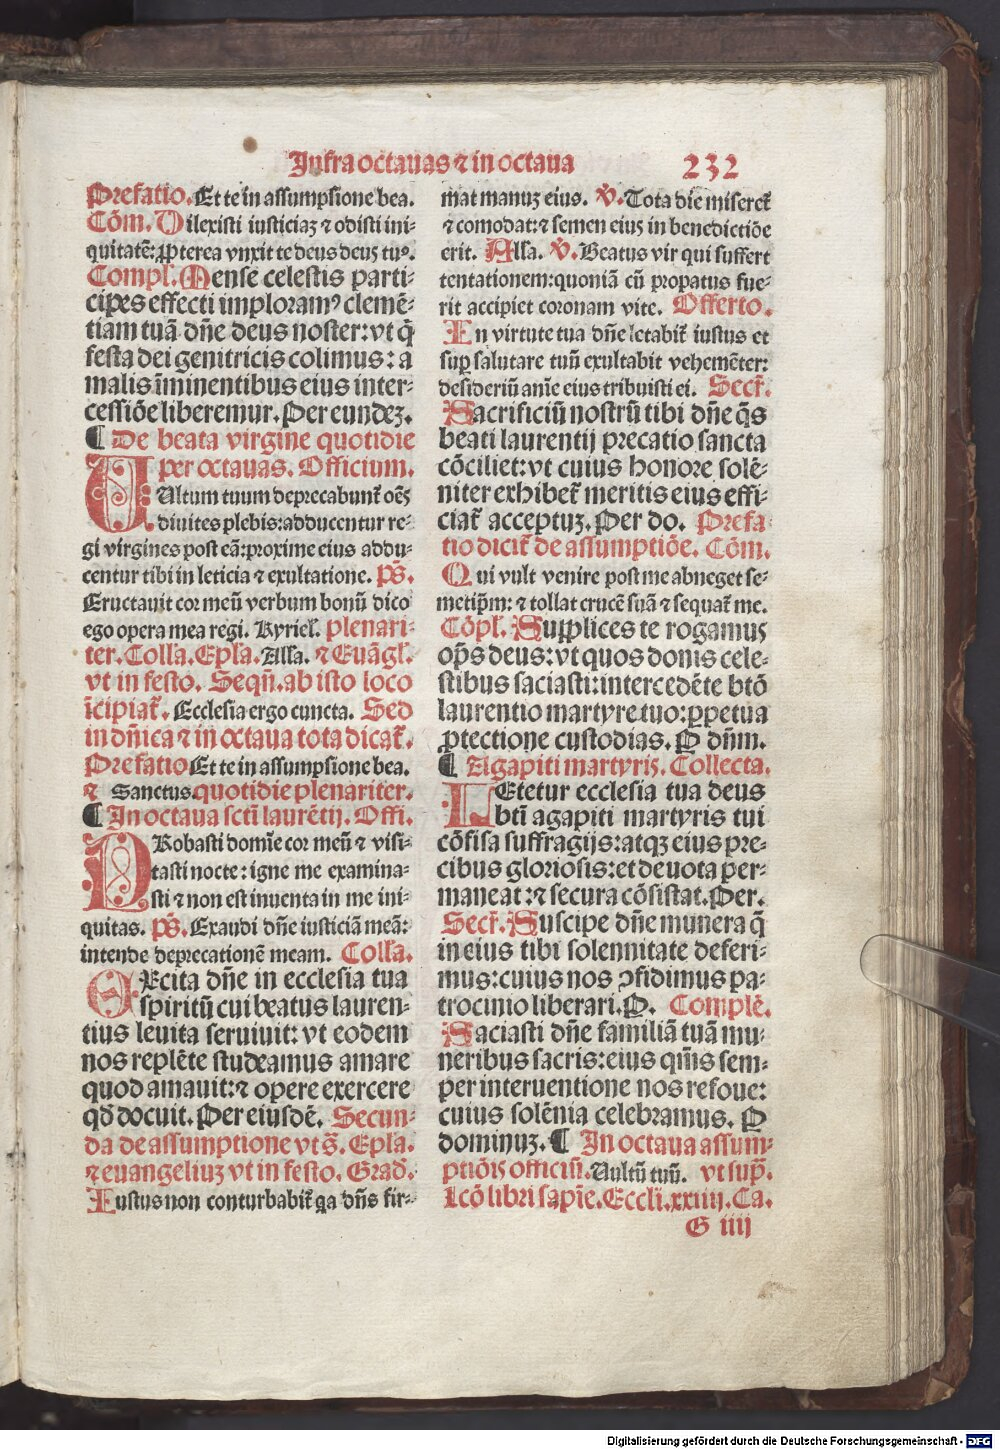 Infra octauas ⁊ in octaua 232
Prefatio. Et te in assumpsione bea.
Cōm. Dilexisti iusticiaʒ ⁊ odisti ini⸗
quitatē: ꝓpterea vnxit te deus deus tuꝰ.
Compl. Mense celestis parti⸗
cipes effecti imploramꝰ clemē⸗
tiam tuā dñe deus noster: vt q̄
festa dei genitricis colimus: a
malis īminentibus eius inter⸗
cessiōe liberemur. Per eundeʒ.
¶ De beata virgine quotidie
per octauas. Officium.
VUltum tuum deprecabunt̃ oēs
diuites plebis: adducentur re⸗
gi virgines post eā: proxime eius addu⸗
centur tibi in leticia ⁊ exultatione. p̄s.
Eructauit cor meū verbum bonū dico
ego opera mea regi. Kyriel̃. plenari⸗
ter. Coll̃a. Epl̃a. All̃a. ⁊ Euāgl̃.
vt in festo. Seqñ. ab isto loco
īcipiat̃. Ecclesia ergo cuncta. Sed
in dñica ⁊ in octaua tota dicat̃.
Prefatio Et te in assumpsione bea.
⁊ Sanctus quotidie plenariter.
¶ In octaua sctī laurētij. Offi.
PRobasti domīe cor meū ⁊ visi⸗
tasti nocte: igne me examina⸗
sti ⁊ non est inuenta in me ini⸗
quitas. p̄s. Exaudi dñe iusticiā meā:
intende deprecationē meam. Coll̃a.
EXcita dñe in ecclesia tua
spiritū cui beatus lauren⸗
tius leuita seruiuit: vt eodem
nos replēte studeamus amare
quod amauit: ⁊ opere exercere
qđ docuit. Per eiusdē. Secun⸗
da de assumptione vt s̄. Epl̃a.
⁊ euangeliuʒ vt in festo. Grad̃.
Iustus non conturbabit̃ qa dñs fir⸗
mat manuʒ eius. ℣. Tota die miseret̃
⁊ comodat: ⁊ semen eius in benedictiōe
erit. All̃a. ℣. Beatus vir qui suffert
tentationem: quoniā cū propatus fue⸗
rit accipiet coronam vite. Offerto.
In virtute tua dñe letabit̃ iustus et
suꝑ salutare tuū exultabit vehemēter:
desideriū anīe eius tribuisti ei. Secr̃.
Sacrificiū nostrū tibi dñe q̄s
beati laurentij precatio sancta
cōciliet: vt cuius honore solē⸗
niter exhibet̃ meritis eius effi⸗
ciat̃ acceptuʒ. Per do. Prefa
tio dicit̃ de assumptiōe. Cōm.
Qui vult venire post me abneget se⸗
metip̄m: ⁊ tollat crucē suā ⁊ sequat̃ me.
Cōpl̃. Supplices te rogamus
op̄s deus: vt quos donis cele⸗
stibus saciasti: intercedēte btō
laurentio martyre tuo: ꝑpetua
ꝓtectione custodias. P dñm.
¶ Agapiti martyris. Collecta.
LEtetur ecclesia tua deus
btī agapiti martyris tui
cōfisa suffragijs: atqʒ eius pre⸗
cibus gloriosis: et deuota per⸗
maneat: ⁊ secura cōsistat. Per.
Secr̃. Suscipe dñe munera q̄
in eius tibi solennitate deferi⸗
mus: cuius nos ꝯfidimus pa⸗
trocinio liberari. P. Complē.
Saciasti dñe familiā tuā mu⸗
neribus sacris: eius qm̄s sem⸗
per interuentione nos refoue:
cuius solēnia celebramus. P
dominuʒ. ¶ In octaua assum⸗
ptiōis officiū. Uultū tuū. vt supͣ.
Lcō libri sapīe. Eccli. xxiiij. Ca.
G iiij
Digitalisierung gefördert durch die Deutsche Forschungsgemeinschaft - DFG